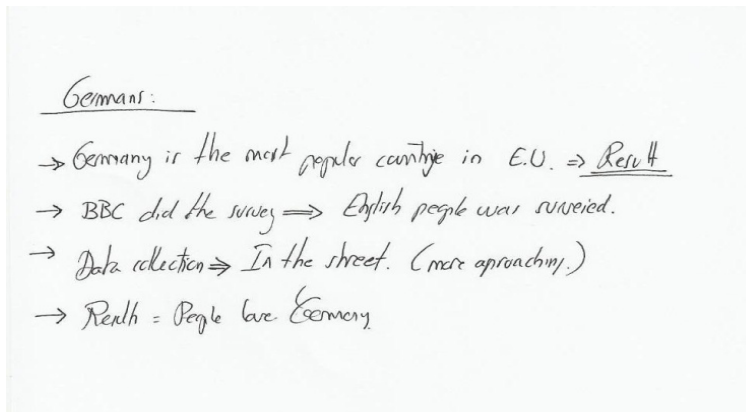 Germans:
→ Germany is the most popular countrye in E.U. ⇒ Result
→ BBC did the survey ⇒ English people was surveied.
→ Data collection ⇒ In the street. (more aproaching.)
→ Results = People love Germany